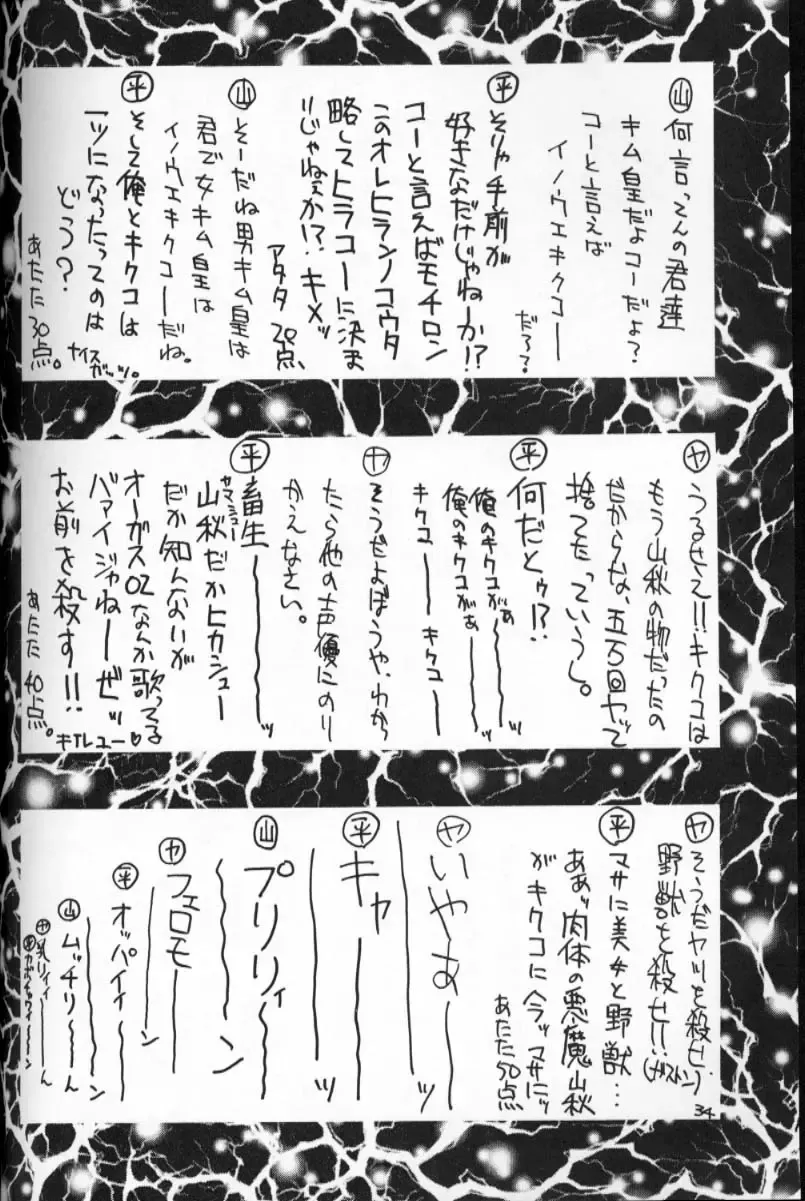 ㊤何言ってんの君達
キム皇だよコーだよ?
コーと言えば
イノウエキクコー
だろ?
㊥そりゃ手前が
好きなだけじゃねーか!?
コーと言えばモチロン
このオレヒランノコウタ
略してヒラコーに決ま
りじゃねぇか!?キメッ
アタタ 20点、
㊤そーだね男キム皇は
君で女キム皇は
イノウエキクコーだね。
㊥そして俺とキクコは
一ツになったってのは
どう?
ナイスガッツ。
あたた 30点。
ヤ うるせえ!!キクコは
もう山秋の物だったの
だからな、五万回ヤって
捨てたっていうし。
平 何だとゥ!?
俺のキクコがぁ〜〜ッ
俺のキクコがぁ〜〜ッ
キクコ―― キクコ――
ヤ そうだよぼうや、わかっ
たら他の声優にのり
かえなさい。
平 畜生〜〜〜ッ
山秋だかヒカシュー
ヤマシュー
だか知んないが
オーガス02なんか歌ってる
バァイジャねーぜッ
お前を殺す!!
キTレユー♡
あたた 40点。
ヤ そうだヤツを殺せ、
野獣を殺せ!!(ガストン)
平 マサに美女と野獣…
ああッ肉体の悪魔山秋
がキクコに今ッマサにッ
あたた50点
ヤ いやあ――ッ
――――ッ
平 キャ―――
〜〜〜ッ
山 プリリィ〜〜
〜〜〜ン
ヤ フェロモ――
――ン
平 オッパイィ――
〜〜〜ン
山 ムッチリ〜〜ん
ヤ 乳リィィ――ん
34